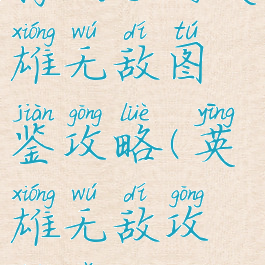 xióng wú dí tú
雄无敌图
jiàn gōng lüè yīng
鉴攻略(英
xióng wú dí gōng
雄无敌攻